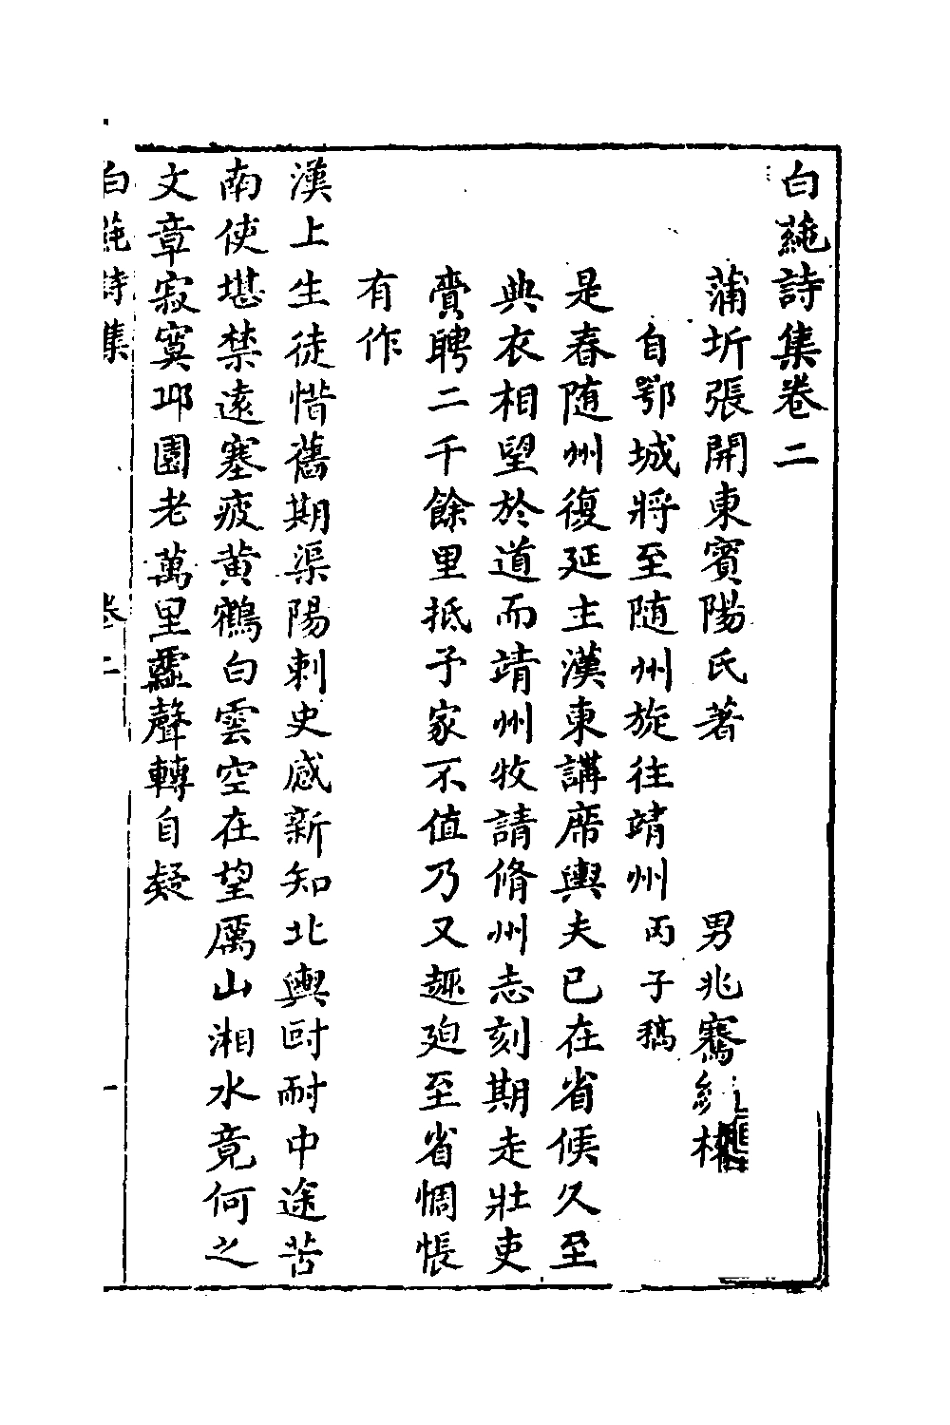 白蒓詩集卷二
蒲圻張開東賓陽氏著　男兆騫 校
自鄂城將至随州旋往靖州丙子稿
是春随州復延主漢東講席輿夫已在省候久至
典衣相望於道而靖州牧請脩州志刻期走壮吏
賷聘二千餘里抵予家不值乃又趣廹至省惆悵
有作
漢上生徒惜舊期渠陽刺史感新知北輿同耐中途苦
南使堪禁遠塞疲黄鶴白雲空在望厲山湘水竟何之
文章寂寞邛園老萬里靁聲轉自疑
白蒓詩集　卷二　一